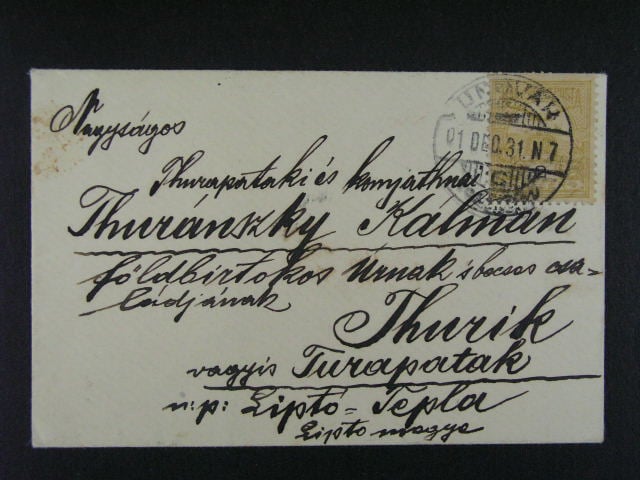 Nagyságos
Thurapataki és komjáthnai
Thuránszky Kálmán
földbirtokos Úrnak s becses csa-
ládjának
Thurik
vagyis Turapatak
u: p: Liptó-Tepla
Liptó megye
UNGVÁR
01 DEC. 31. N 7